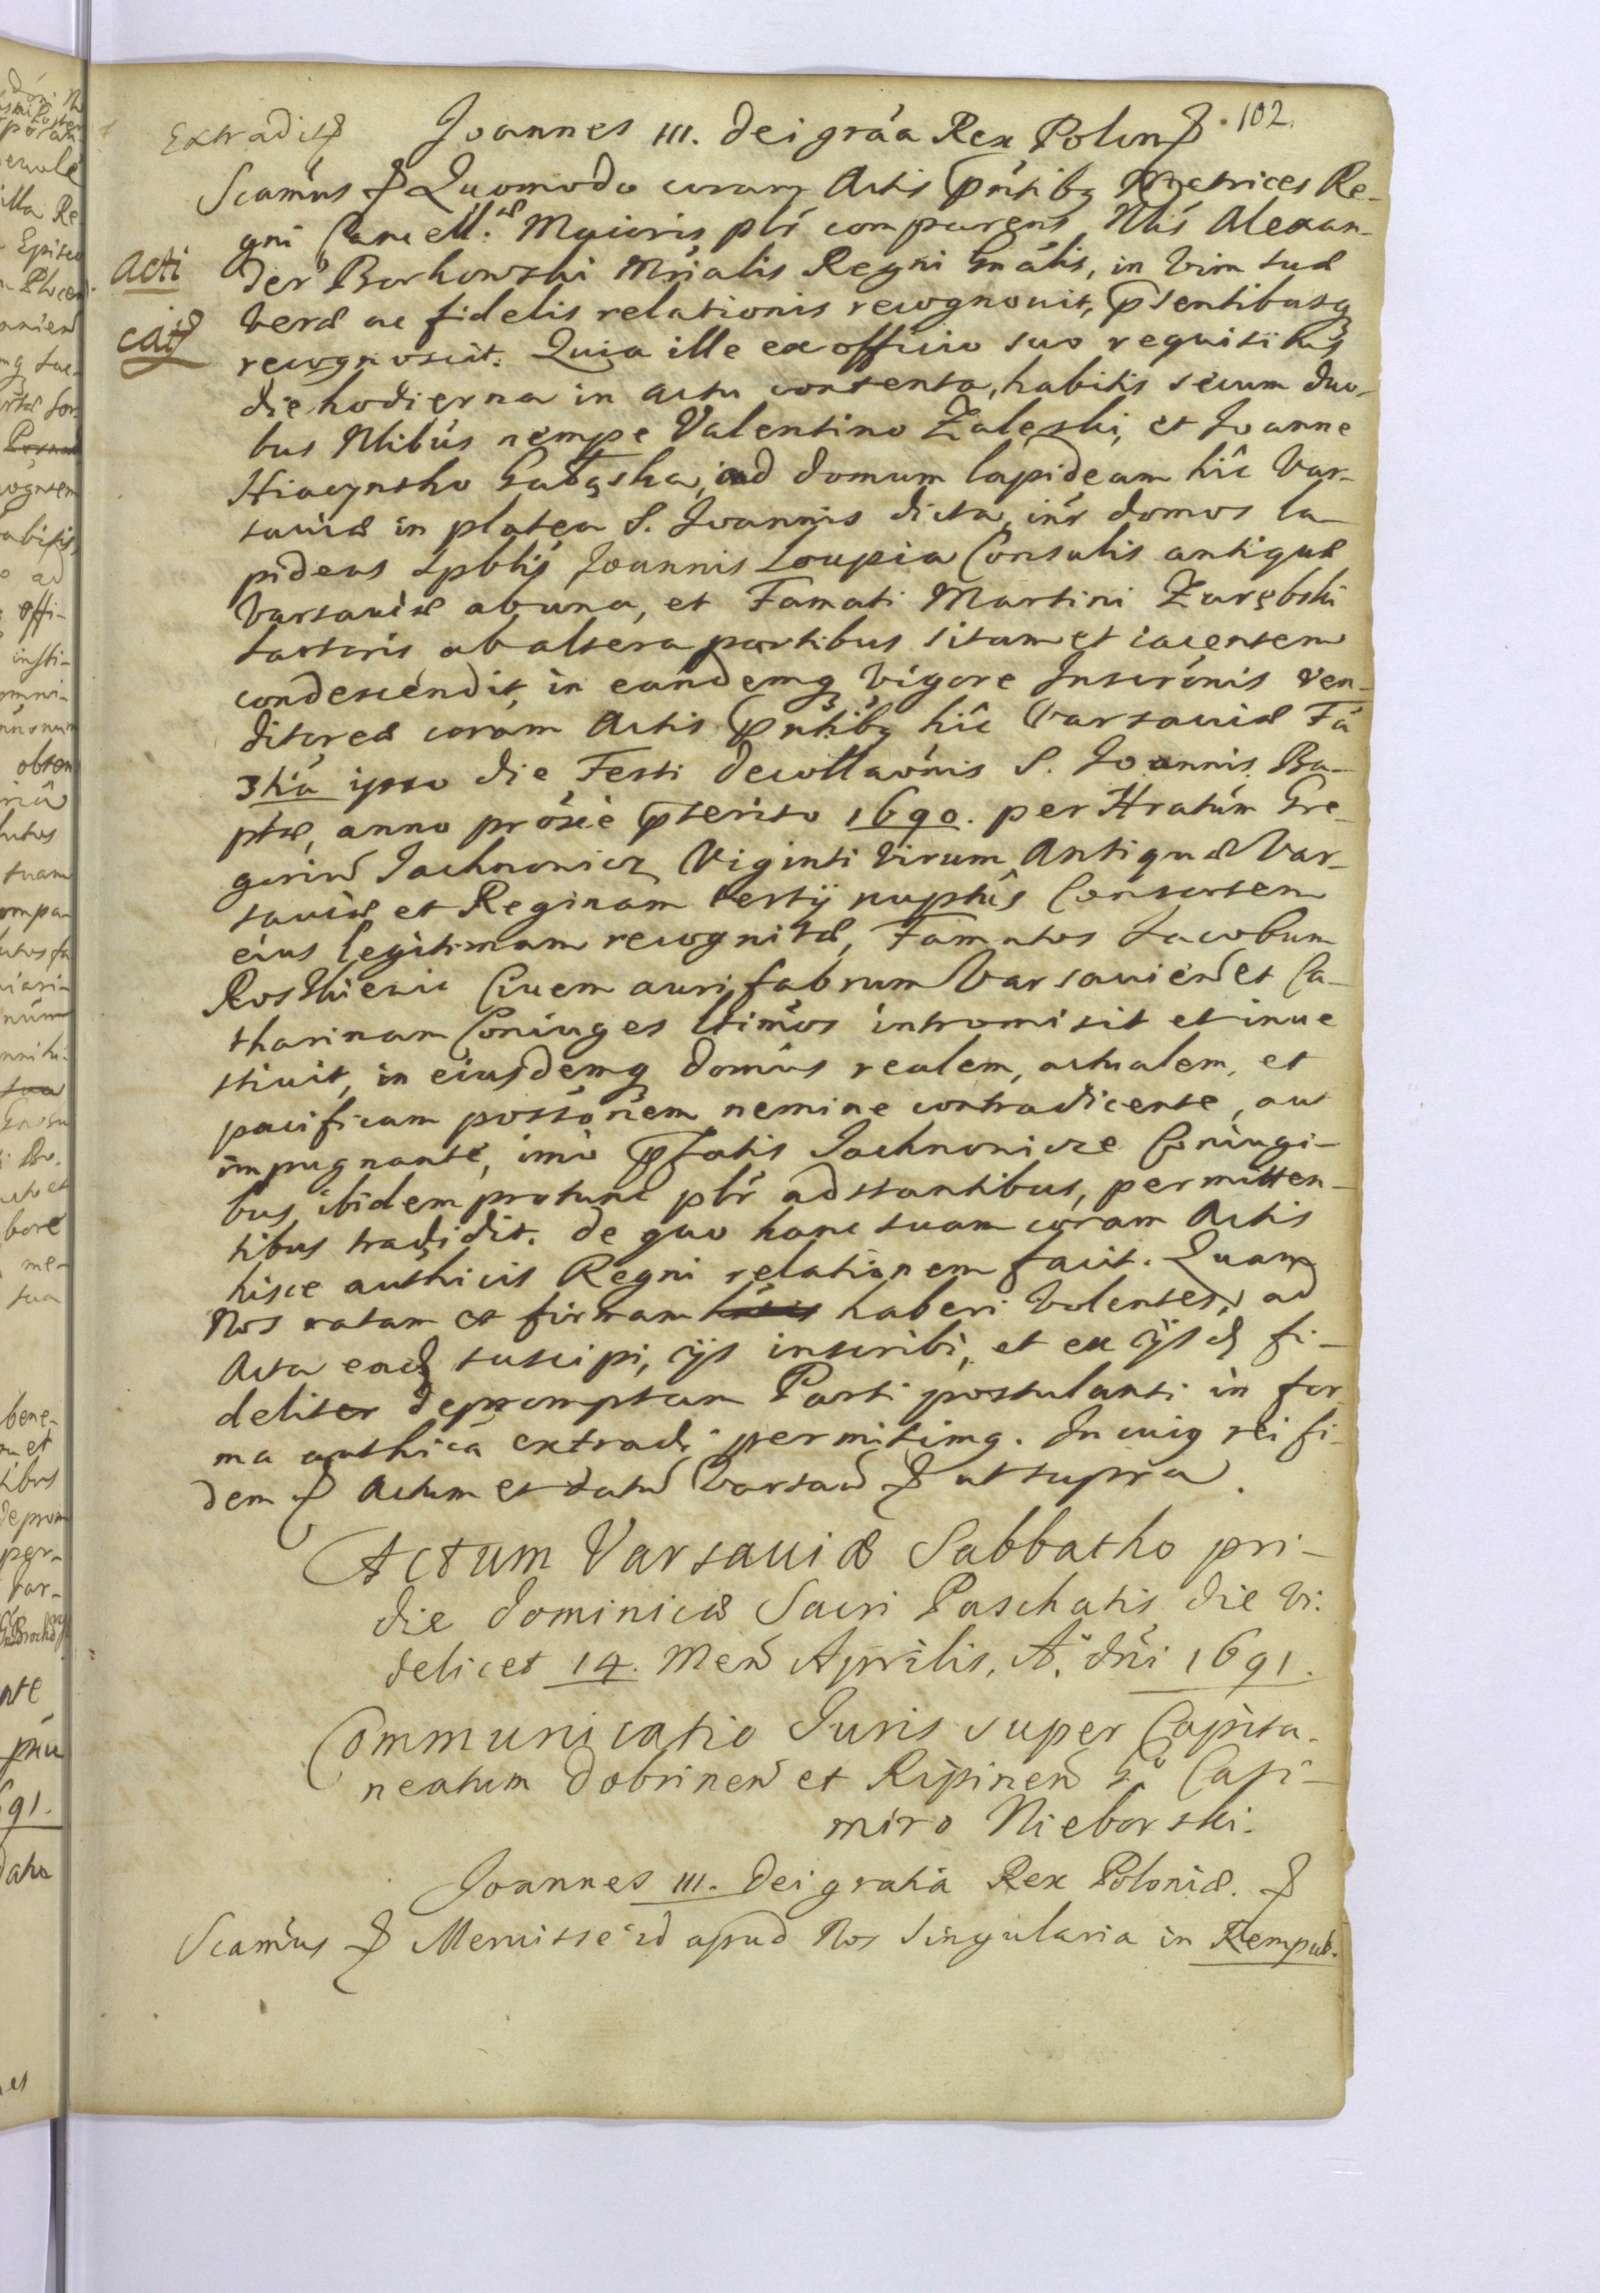 102.
Extradit
Joannes III. Dei gráa Rex Polon
Scamús Quomodo coram Actis pńtibq Metrices Re-
gni Cancell.æ Maioris plr comparens Nlis Alexan-
der Borkowski Mrialis Regni Gnális, in vim suæ
veræ ac fidelis relationis recognouit, psentibusq
recognoscit. Quia ille ex officio suo requisitus
die hodierna in actu contenta, habitis secum duo-
bus Nlibus nempe Valentino Zaleski, et Joanne
ad domum lapideam hîc Var-
sauiæ in platea S. Joannis dicta, inr domos la-
pideas Spblis Joannis Loupia Consulis antiquæ
Varsauiæ ab una, et Famati Martini Zarębski
sartoris ab altera partibus sitam et iacentem
condescendit, in eandemq vigore Inscrōnis ven-
ditoreæ coram Actis pńtibq hîc Varsauiæ Fa
3tia ipso die Festi Decollaōnis S. Joannis Ba-
ptæ, anno proxie pterito 1690. per
gorium Jachnowicz Viginti Virum Antiquæ Var-
sauiæ et Reginam tertÿ nuptus Consortem
eius legitimam recognitæ, Famatos Jacobum
Civem aurifabrum Varsauien et Ca-
tharinam Coniuges ltimos intromisit et inue
stiuit, in eiusdemq domûs realem, actualem, et
pacificam possōnem nemine contradicente, aut
impugnante, imò pfatis Jachnowicze Coniugi-
bus ibidem protunc plr adstantibus, permitten-
tibus tradidit. De quo hanc suam coram Actis
hisce authicis Regni relationem facit. Quam
Nos ratam et firmam haberi volentes, ad
Acta ead suscipi, ÿs inscribi, et ex ÿsd fi-
deliter depromptam Parti postulanti in for
ma authica extradi permisimq. In cuiq rei fi-
dem Actum et datu Varsau ut supra.
Acti
caiæ
Actum Varsauiæ Sabbatho pri-
die Dominicæ Sacri Paschatis die vi.
delicet 14. Men Aprilis, A. dńi 1691.
Communicatio Iuris super Capita-
neatum Dobrinen et Ripinen Casi-
miro Nieborski.
Joannes III. Dei gratia Rex Poloniæ.
Scamús Meruisse id apud Nos singularia in Rempub.